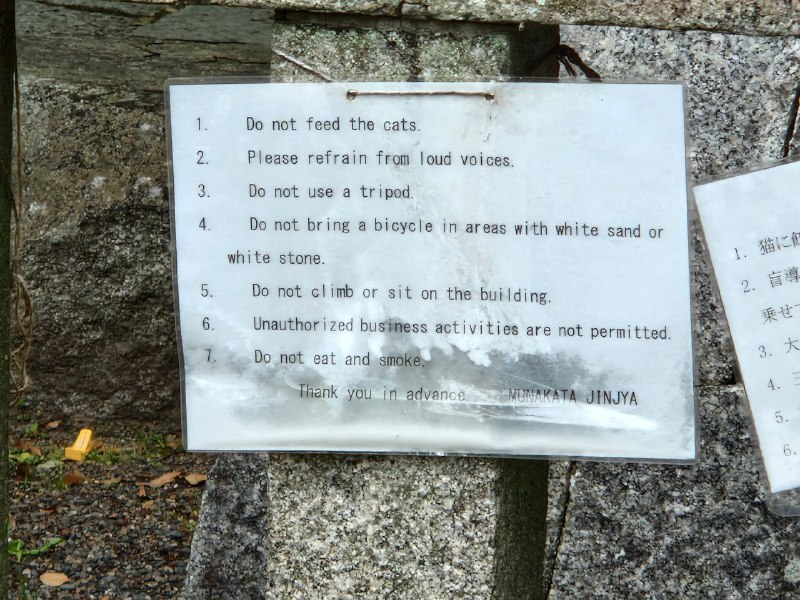 1. Do not feed the cats.
2. Please refrain from loud voices.
3. Do not use a tripod.
4. Do not bring a bicycle in areas with white sand or
white stone.
5. Do not climb or sit on the building.
6. Unauthorized business activities are not permitted.
7. Do not eat and smoke.
Thank you in advance. MUNAKATA JINJYA
1. 猫に
2. 盲導
乗せて
3. 大
4. 三
5.
6.